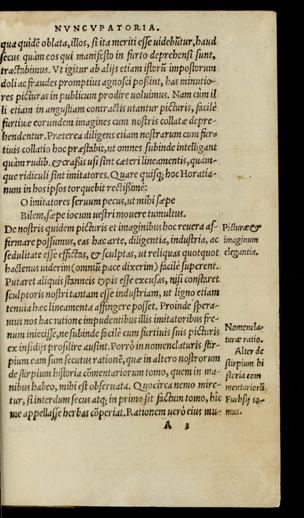 NVNCVPATORIA.
qua quidē oblata, illos, si ita meriti esse uidebūtur, haud
secus quàm eos qui manifesto in furto deprehensi sunt,
tractabimus. Vt igitur ab alijs etiam istorū impostorum
doli ac fraudes promptius agnosci possint, has minutio-
res picturas in publicum prodire uoluimus. Nam cùm il
li etiam in angustiam contractis utantur picturis, facilè
furtiuæ eorundem imagines cum nostris collatæ depre-
hendentur. Præterea diligens etiam nostrarum cum fur-
tiuis collatio hoc præstabit, ut omnes subinde intelligant
quàm rudib. & crassis usi sint cæteri lineamentis, quàm-
que ridiculi sint imitatores. Quare quisq; hoc Horatia-
num in hos ipsos torquebit rectißimè:
O imitatores seruum pecus, ut mihi sæpe
Bilem, sæpe iocum uestri mouere tumultus.
De nostris quidem picturis et imaginibus hoc reuera af-
firmare possumus, eas hac arte, diligentia, industria, ac
sedulitate esse effictas, & sculptas, ut reliquas quotquot
hactenus uiderim (omniū pace dixerim) facilè superent.
Putaret aliquis stanneis typis esse excusas, nisi constaret
sculptoris nostri tantam esse industriam, ut ligno etiam
tenuia hæc lineamenta affingere posset. Proinde spera-
mus nos hac ratione impudentibus illis imitatoribus fre-
num iniecisse, ne subinde facilè cum furtiuis suis picturis
ex insidijs prosilire ausint. Porrò in nomenclaturis stir-
pium eam sum secutus rationē, quæ in altero nostrorum
de stirpium historia cōmentariorum tomo, quem in ma-
nibus habeo, mihi est obseruata. Quocirca nemo mire-
tur, si interdum secus atq; in primo sit factum tomo, hîc
me appellasse herbas cōperiat. Rationem uerò eius mu-
A 3
Picturæ &
imaginum
elegantia.
Nomencla-
turæ ratio.
Alter de
stirpium hi
storia com
mentariorū
Fuchsij to-
mus.